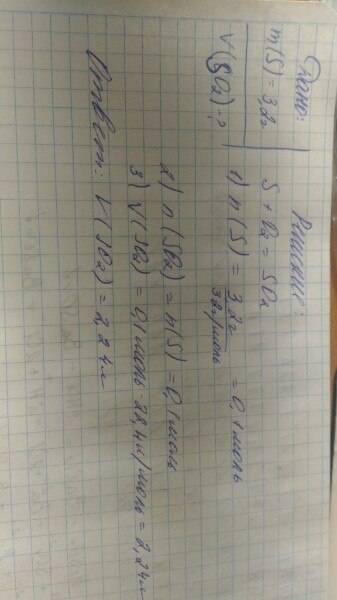 Дано:
m(S) = 3,2г
V(SO₂) = ?
Решение:
S + O₂ = SO₂
1) n(S) = 3,2г / 32г/моль = 0,1 моль
2) n(SO₂) = n(S) = 0,1 моль
3) V(SO₂) = 0,1 моль · 22,4 л/моль = 2,24л
Ответ: V(SO₂) = 2,24л